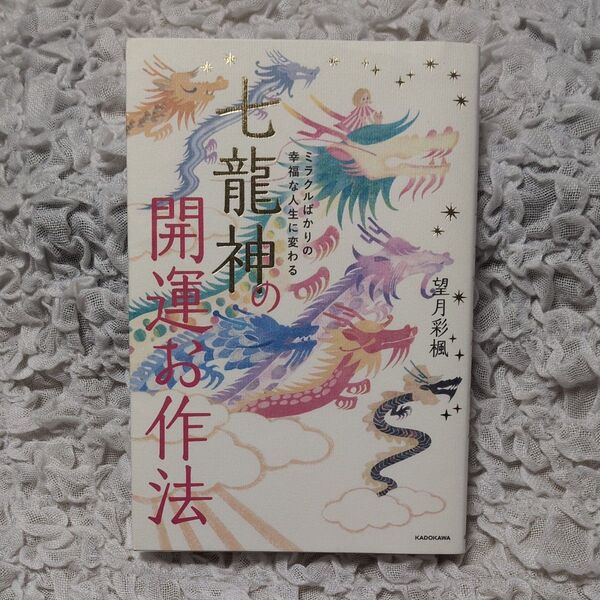 ミラクルばかりの
幸福な人生に変わる
七龍神の
開運お作法
望月彩楓
KADOKAWA